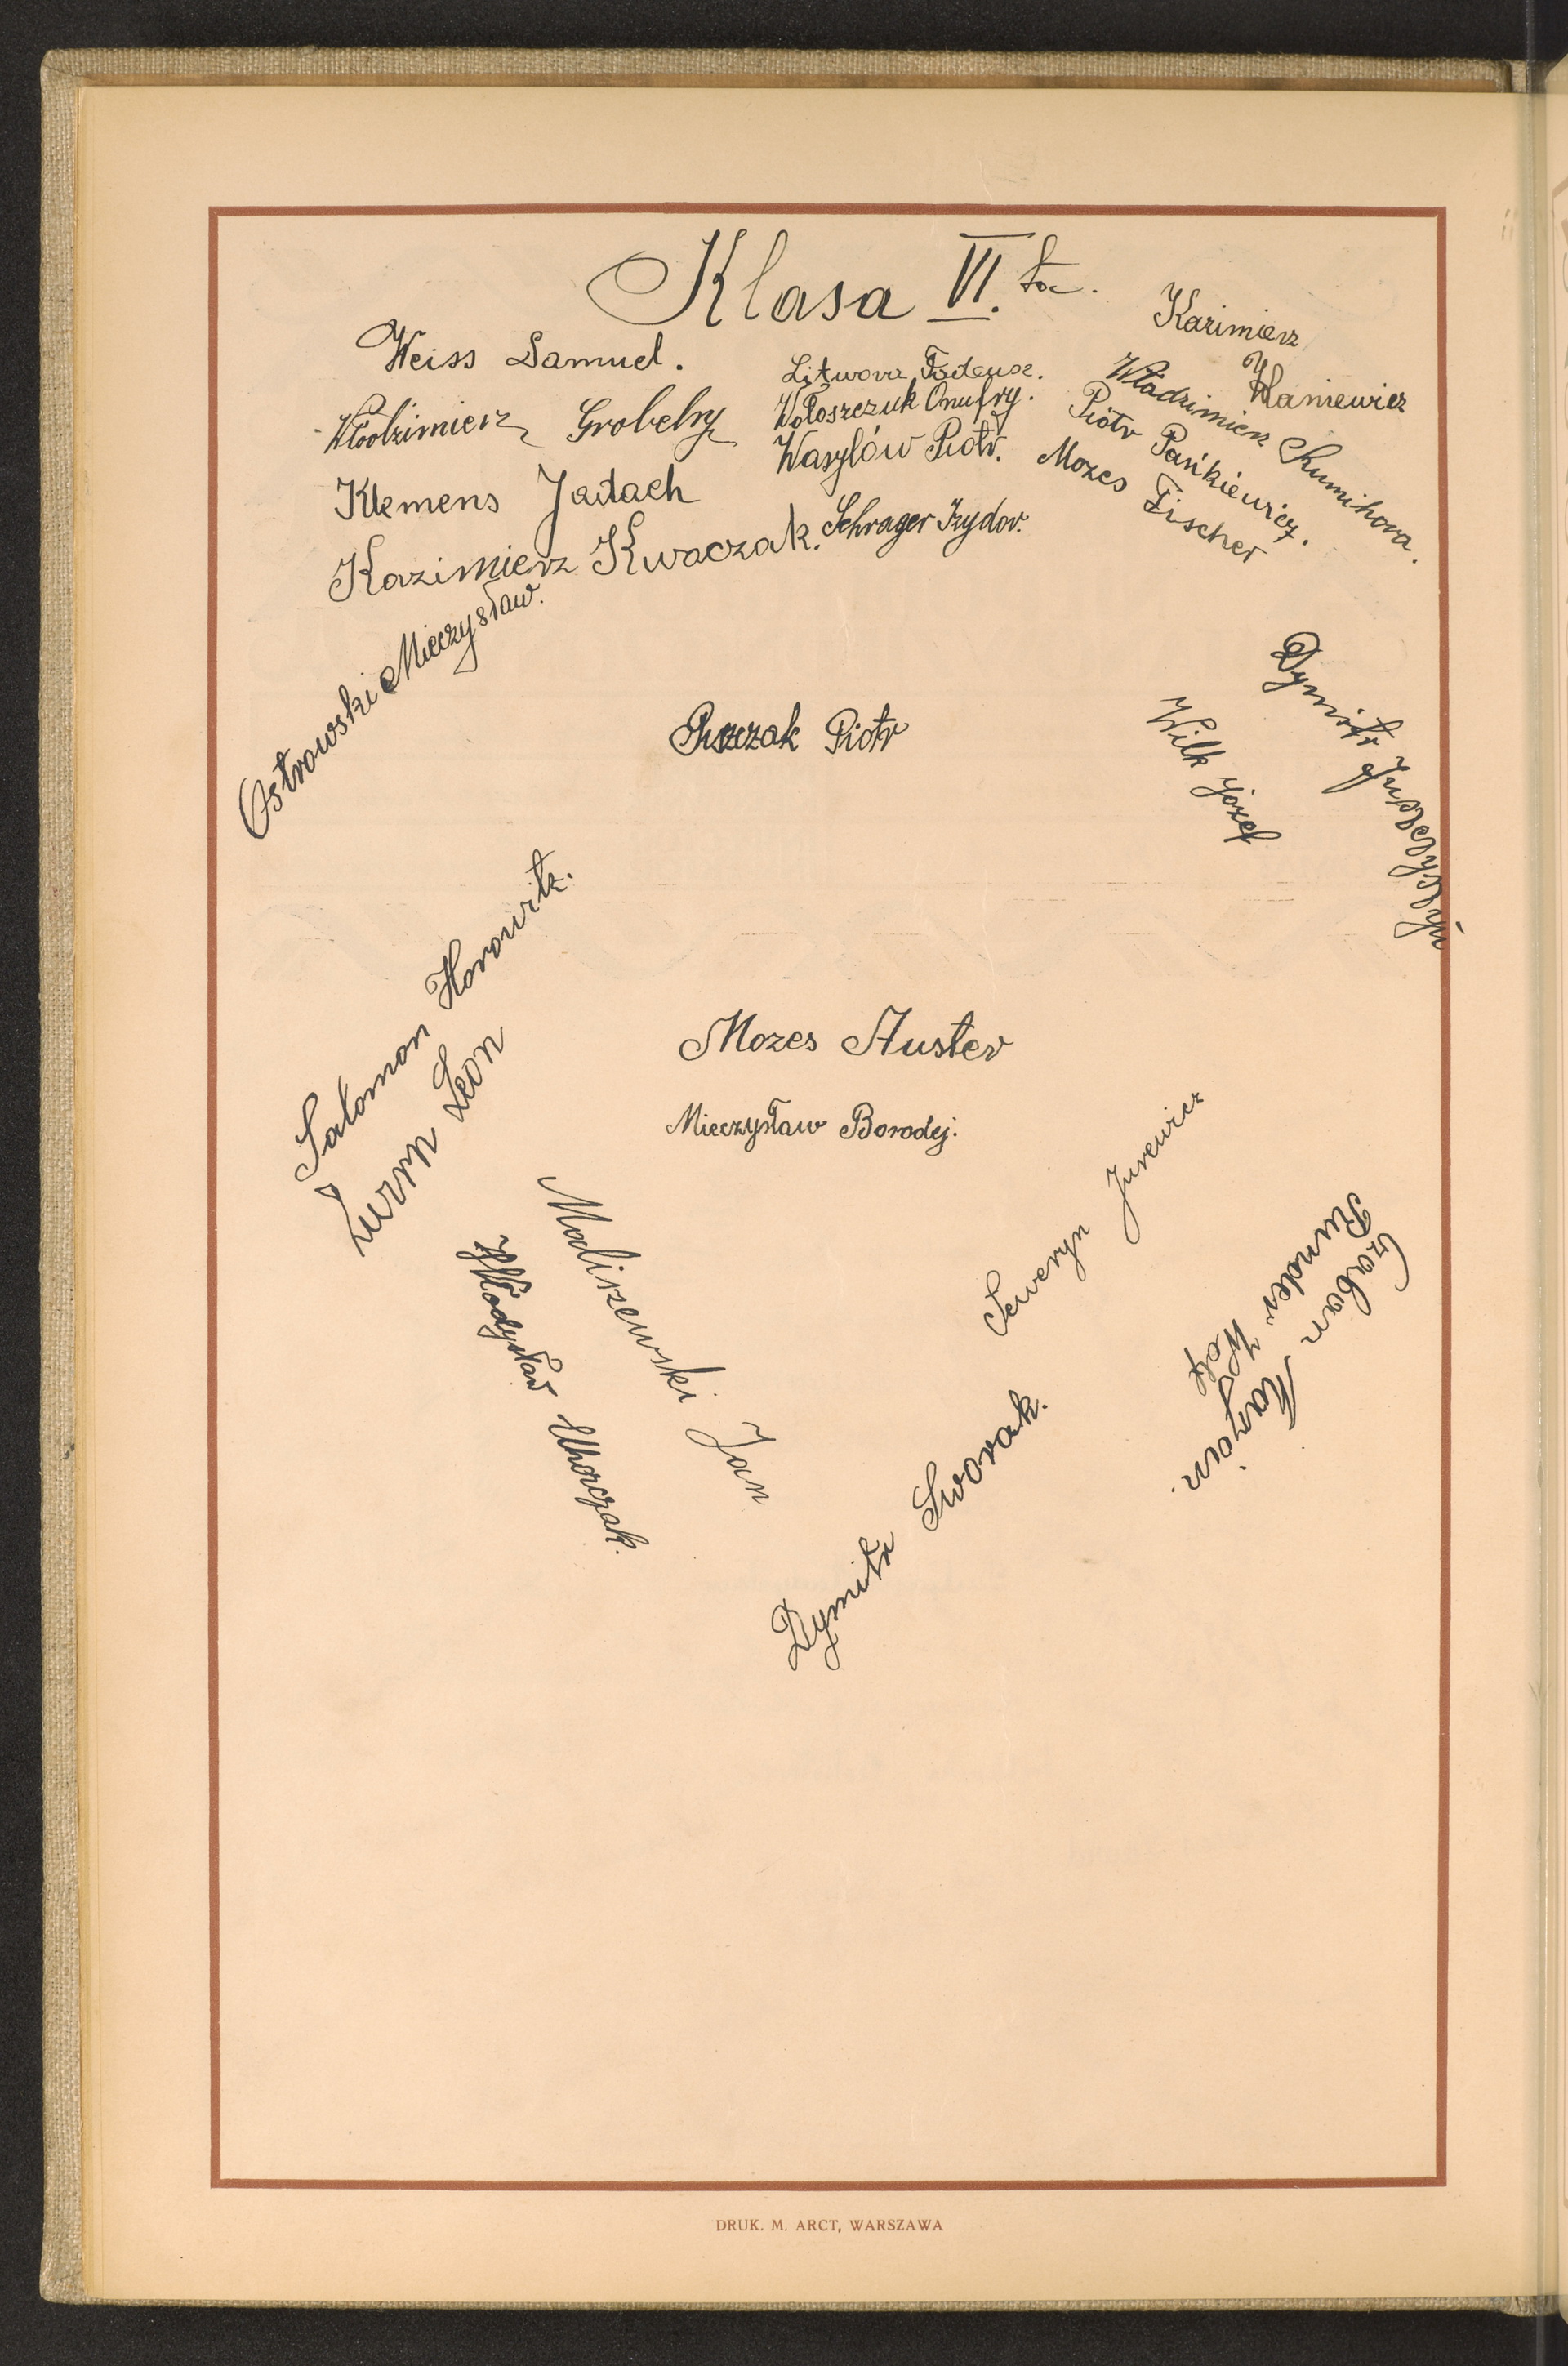 Klasa VI.
Weiss Samuel.
Włodzimierz Grobelny
Klemens Jajtach
Kazimierz Kwaczak.
Litwora Tadeusz.
Wołoszczuk Onufry.
Wasylów Piotr.
Schrager Izydor.
Kazimierz
Waniewicz
Włodzimierz Skumihora.
Piotr Pańkiewicz.
Mozes Fischer
Ostrowski Mieczysław.
Puszczak Piotr
Wilk Józef
Dymitr
Salomon Horowitz.
Zurm Leon
Mozes Auster
Mieczysław Borodej.
Maliszewski Jan
Władysław Uhorczak.
Seweryn Jurewicz
Dymitr Sworak.
Czaban Marjan.
Runder Wolf
DRUK. M. ARCT, WARSZAWA